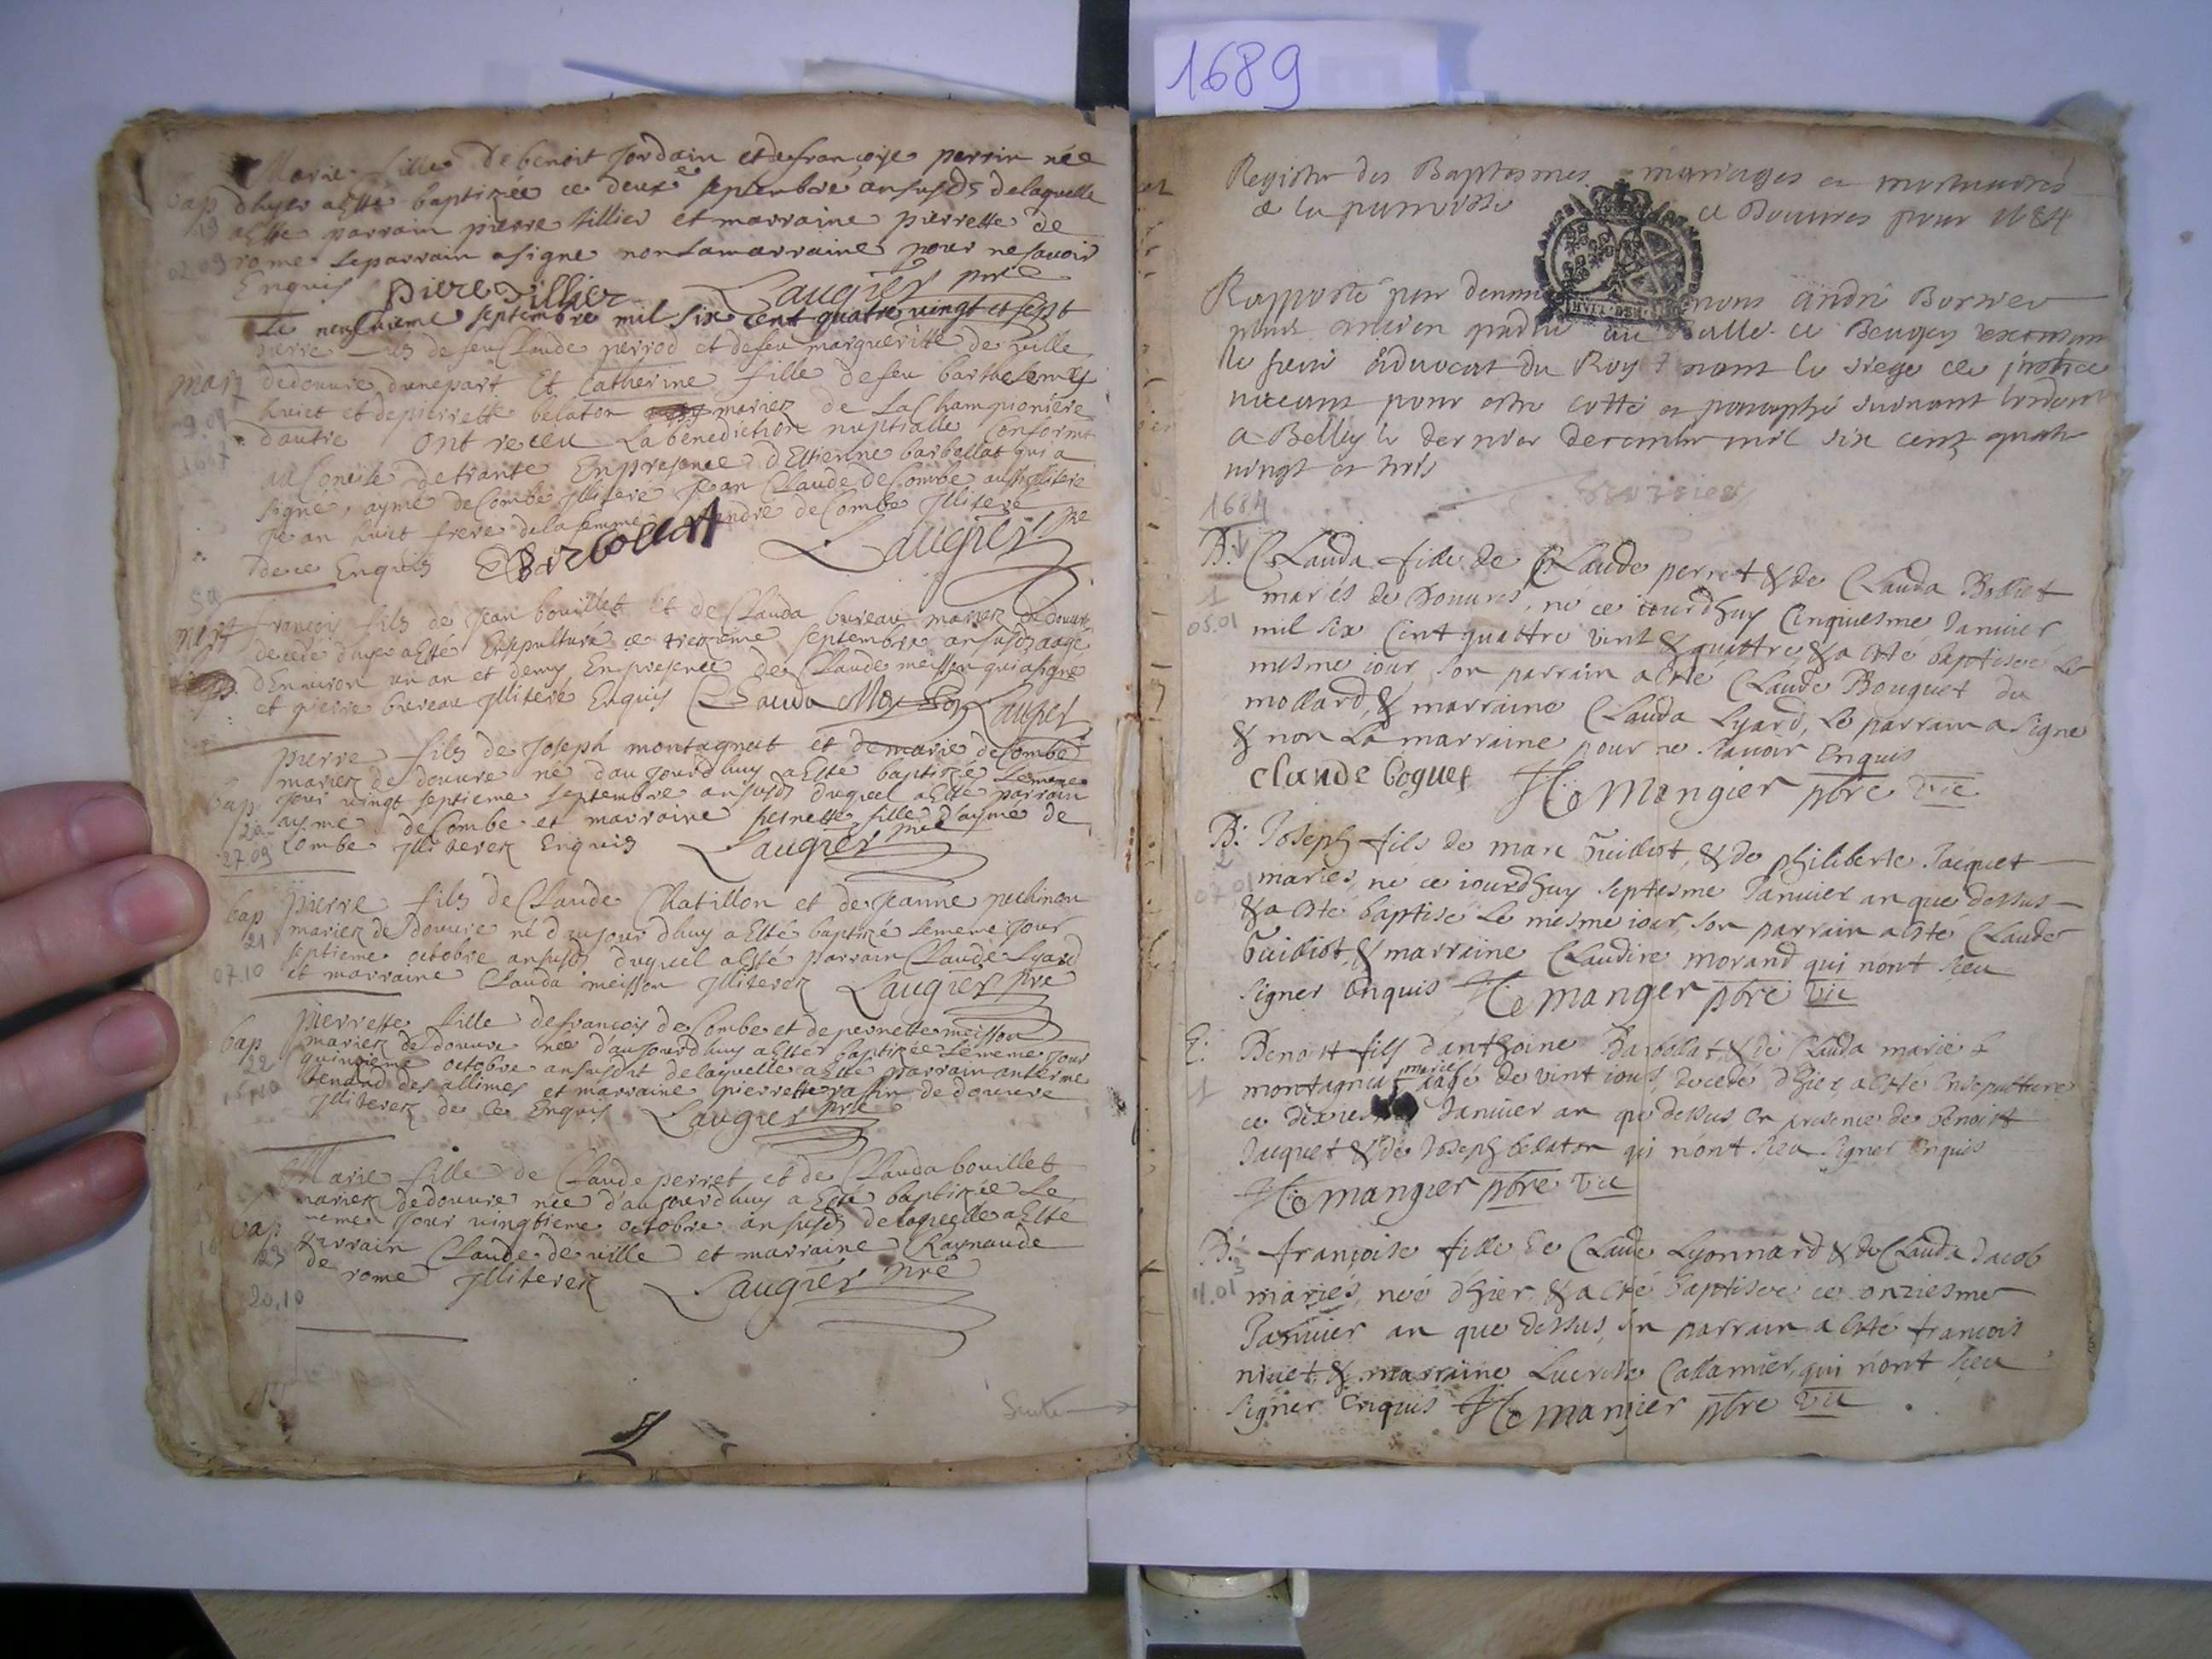 Marie fille de benoit Jordain et de francoise perrin née
bap dhyer a Esté baptizée ce deuxe septembre an susds de laquelle
19 a Esté parrain pierre tillier et marraine pierrette de
02.09 rome le parrain a signé non la marraine pour ne scavoir
Enquis piere tillier Laugier pre
Le neufvieme septembre mil six cent quatre vingt et sept
pierre fils de feu Claude perrod et de feu margueritte de ville
mari de douvre d'une part Et Catherine fille de feu barthelemy
huict et de pierrette belaton mariez de La Championiere
9.09 d'autre ont receu La benediction nuptialle Conformt
au Concile de trante En presence d'Estienne barbellat qui a
signé, aymé de Combe Illiteré Jean Claude de Combe aussi Illiteré
Jean huict frere de la femme andré de Combe Illiteré
de ce Enquis EBarbollat Laugier pre
françois fils de Jean bouillet et de Clauda bureau mariez de douvre
decedé dhyer a Esté Ensepulturé ce trezieme septembre an susds aagé
d'Environ un an et demy En presence de Claude meisson qui a signé
et pierre bureau Illiteré Enquis Claude Laugier
pierre fils de Joseph montagnat et de marie de Combe
mariez de douvre né d'aujourdhuy a Esté baptizé Le meme
bap Jour vingt septieme septembre an susds duquel a Esté parrain
20 aymé de Combe et marraine pernette fille d'aymé de
27.09 Combe Illiterez Enquis Laugier pre
bap pierre fils de Claude Chatillon et de Jeanne pochinon
21 mariez de douvre né d'aujourdhuy a Esté baptizé Le meme Jour
septieme octobre an susds duquel a Esté parrain Claude Lyard
07.10 et marraine Clauda meisson Illiterez Laugier pre
pierrette fille de francois de Combe et de pernette meisson
bap mariez de douvre née d'aujourdhuy a Esté baptizée Le meme Jour
22 quinzieme octobre an susdt de laquelle a Esté parrain anterme
15.10 tenand des allimes et marraine pierrette raffin de douvre
Illiterez de ce Enquis Laugier pre
Marie fille de Claude perret et de Clauda bouillet
mariez de douvre née d'aujourdhuy a Esté baptizée Le
bap meme Jour vingtieme octobre an susds de laquelle a Esté
23 parrain Claude de ville et marraine Raynaude
20.10 de rome Illiterez Laugier pre
Suite
1689
Registre des Baptesmes mariages et mortuaires
de la parroisse de Douvres pour 1684
Rapporté par devant nous André Bornier
plus ancien gradué au Balle. de Beugey
le sieur Advocat du Roy tenant le siege de justice
vaccant pour estre cotté et paraphé suivant lordon
a Belley le dernier decembre mil six cent quatre
vingt et trois
1684
B: 1 Clauda fille de Claude perret & de Clauda Bolliet
1 mariés de Douvres, né ce jourdhuy Cinquiesme Janvier
05.01 mil six Cent quattre vint & quattre, & a esté baptisée Le
mesme iour, son parrain a esté Claude Bouguet du
mollard, & marraine Clauda Lyard, Le parrain a signe
& non La marraine pour ne scavoir Enquis
claude boguet Mongier pbre vic
B: Joseph fils de marc Guilliot, & de philiberte Jacquet
2 mariés, né ce iourdhuy septiesme Janvier an que dessus
07.01 & a esté baptisé Le mesme iour, son parrain a esté Claude
Guilliot, & marraine Claudine morand qui nont sceu
signer Enquis Manger pbre vic
E: Benoist fils danthoine Barbollat & de Clauda marie
1 montagnat mariés aagé de vint iours decedé dhier a esté Ensepulture
ce dixies Janvier an que dessus en presence de Benoist
Jacquet & de Joseph belaton qui nont sceu signer Enquis
mangier pbre vic
B: françoise fille de Claude Lyonnard & de Clauda Jacob
3 mariés, née dhier, & a esté baptisée ce onziesme
11.01 Janvier an que dessus, son parrain a esté francois
niuet, & marraine Lucresse Callamier, qui nont sceu
signer Enquis manier pbre vic